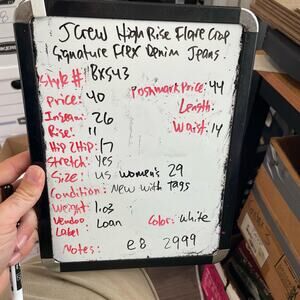 J Crew High Rise Flare Crop
Signature Flex Denim Jeans
Style #: BX543
Price: 40
Poshmark Price: 44
Inseam: 26
Length:
Rise: 11
Waist: 14
Hip 2 Hip: 17
Stretch: Yes
Size: US Women's 29
Condition: New with tags
Weight: 1.03
Vendoo Label: Loan
Color: White
Notes: e8 2999